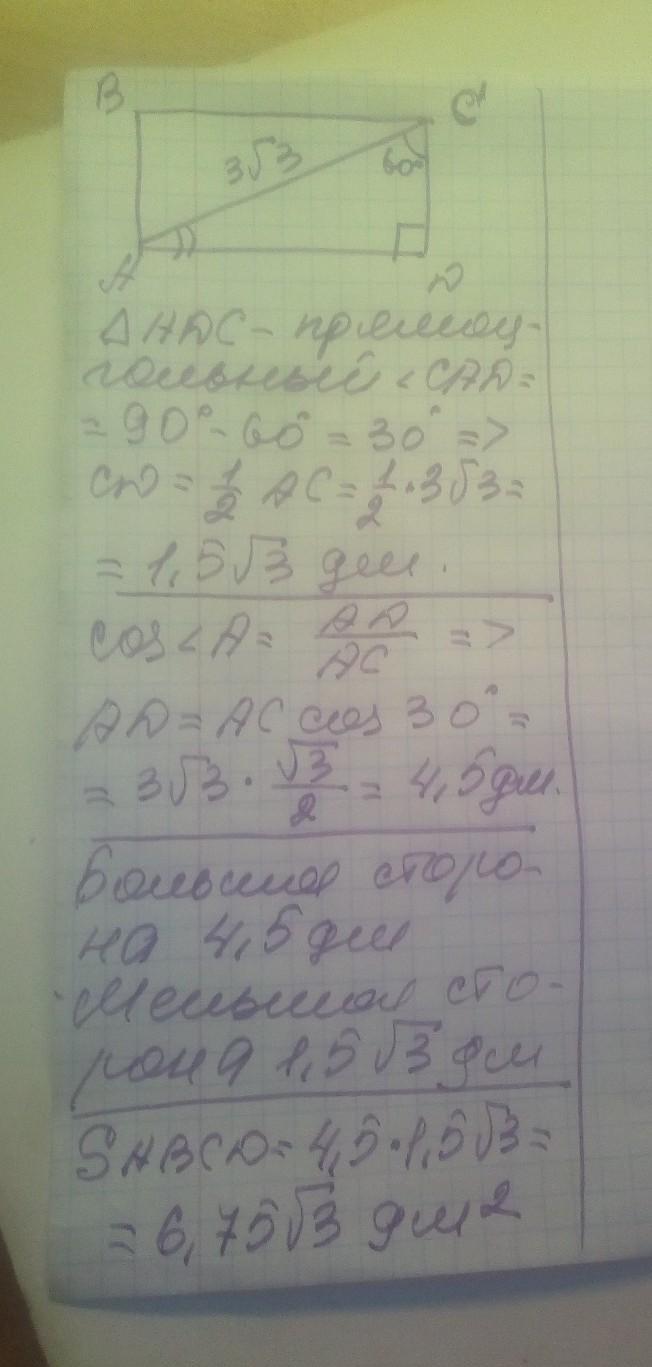 B C
3√3 60°
A D
△ADC - прямоу-
гольный <CAD=
= 90° - 60° = 30° =>
CD = 1/2 AC = 1/2 · 3√3 =
= 1,5√3 дм.
cos<A = AD/AC =>
AD = AC cos 30° =
= 3√3 · √3/2 = 4,5 дм.
Большая сторо-
на 4,5 дм
Меньшая сто-
рона 1,5√3 дм
SABCD = 4,5 · 1,5√3 =
= 6,75√3 дм²